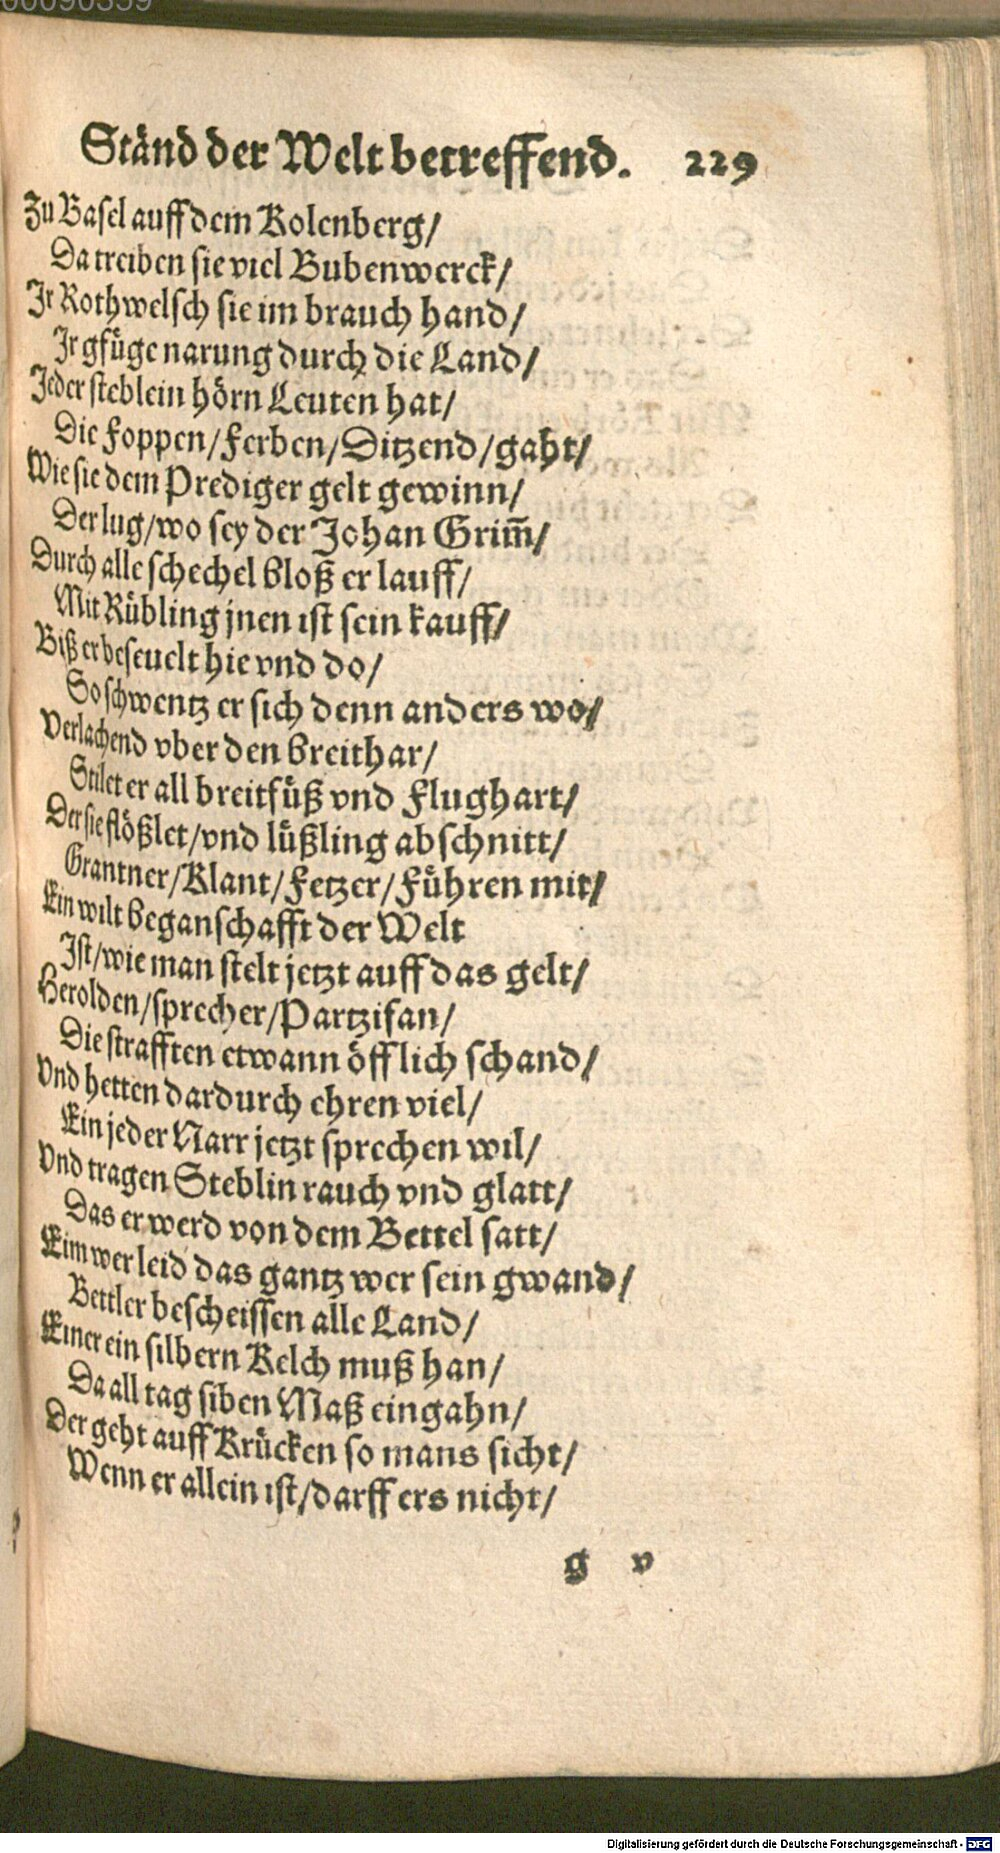 00090359
Ständ der Welt betreffend. 229
Zu Basel auff dem Kolenberg/
Da treiben sie viel Bubenwerck/
Jr Rothwelsch sie im brauch hand/
Jr gfüge narung durch die Land/
Jeder steblein hörn Leuten hat/
Die Foppen/Ferben/Ditzend/gaht/
Wie sie dem Prediger gelt gewinn/
Der lug/wo sey der Johan Grim̄/
Durch alle schechel bloß er lauff/
Mit Rübling jnen ist sein kauff/
Biß er beseuelt hie vnd do/
So schwentz er sich denn anders wo/
Verlachend vber den breithar/
Stilet er all breitfüß vnd Flughart/
Der sie flößlet/vnd lüßling abschnitt/
Grantner/Klant/Fetzer/Führen mit/
Ein wilt beganschafft der Welt
Ist/wie man stelt jetzt auff das gelt/
Herolden/sprecher/Partzifan/
Die strafften etwann öfflich schand/
Vnd hetten dardurch ehren viel/
Ein jeder Narr jetzt sprechen wil/
Vnd tragen Steblin rauch vnd glatt/
Das er werd von dem Bettel satt/
Eim wer leid das gantz wer sein gwand/
Bettler bescheissen alle Land/
Einer ein silbern Kelch muß han/
Da all tag siben Maß eingahn/
Der geht auff Krücken so mans sicht/
Wenn er allein ist/darff ers nicht/
g v
Digitalisierung gefördert durch die Deutsche Forschungsgemeinschaft - DFG